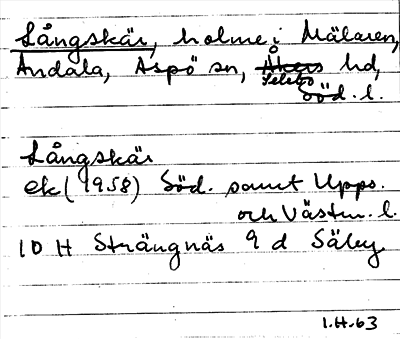 Långskär, holme i Mälaren,
Andala, Aspö sn, Åkers hd,
Selebo
Söd. l.
Långskär
ek (1958) Söd. samt Upps.
och Västm. l.
10 H Strängnäs 9 d Säby
1.H.63